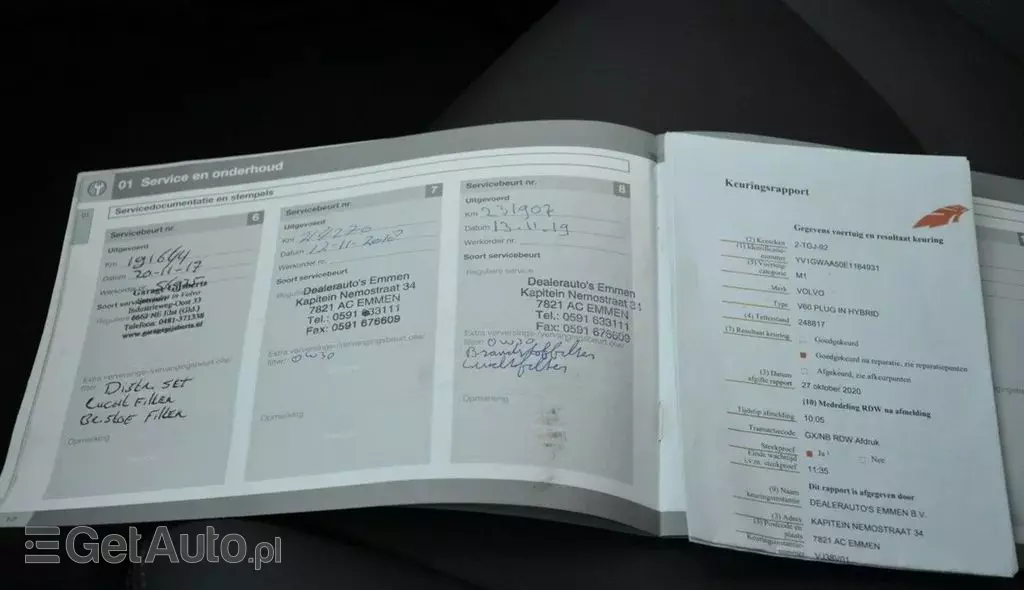 01 Service en onderhoud
Servicedocumentatie en stempels
Servicebeurt nr. 6
Uitgevoerd
Km 191644
Datum 20-11-17
Werkorder nr.
Soort servicebeurt
Garage Gijsberts
Specialist in Volvo
Industrieweg-Oost 33
6662 NE Elst (Gld.)
Telefoon: 0481-371338
www.garagegijsberts.nl
Extra verversings-/vervangingsbeurt olie/
filter
Distr. SET
Lucht Filter
Opmerking
Servicebeurt nr. 7
Uitgevoerd
Km
Datum 12-11-2018
Werkorder nr.
Soort servicebeurt
Dealerauto's Emmen
Kapitein Nemostraat 34
7821 AC EMMEN
Tel.: 0591 633111
Fax: 0591 676609
Extra verversings-/vervangingsbeurt olie/
filter: 0W30
Opmerking
Servicebeurt nr. 8
Uitgevoerd
Km 231907
Datum 13-11-19
Werkorder nr.
Soort servicebeurt
Reguliere service
Dealerauto's Emmen
Kapitein Nemostraat 34
7821 AC EMMEN
Tel.: 0591 633111
Fax: 0591 676609
Extra verversings-/vervangingsbeurt olie/
filter: 0W30
Brandstoffilter
Luchtfilter
Opmerking
Keuringsrapport
Gegevens voertuig en resultaat keuring
(2) Kenteken 2-TGJ-92
(1) Identificatie-
nummer YV1GWAA50E1164931
(5) Voertuig-
categorie M1
Merk VOLVO
Type V60 PLUG IN HYBRID
(4) Tellerstand 248817
(7) Resultaat keuring Goedgekeurd
Goedgekeurd na reparatie, zie reparatiepunten
Afgekeurd, zie afkeurpunten
(3) Datum
afgifte rapport 27 oktober 2020
(10) Mededeling RDW na afmelding
Tijdstip afmelding 10:05
Transactiecode GX/NB RDW Afdruk
Steekproef Ja Nee
Einde wachttijd
i.v.m. steekproef 11:35
Dit rapport is afgegeven door
(9) Naam
keuringsinstantie DEALERAUTO'S EMMEN B.V.
(3) Adres KAPITEIN NEMOSTRAAT 34
(3) Postcode en
plaats 7821 AC EMMEN
Keuringsinstantie-
nummer
GetAuto.pl